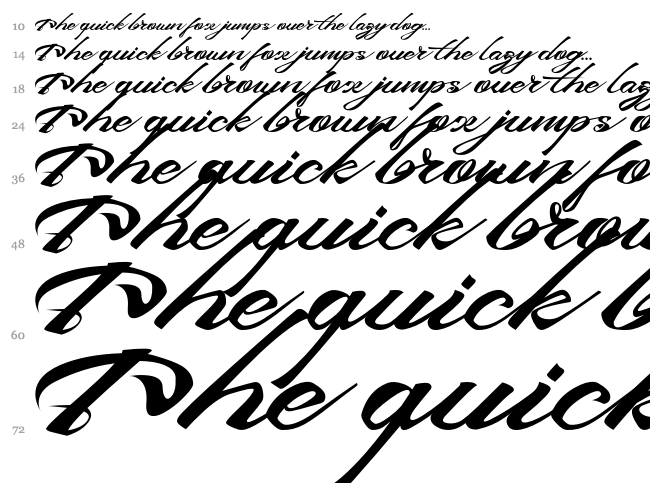 10 The quick brown fox jumps over the lazy dog...
14 The quick brown fox jumps over the lazy dog...
18 The quick brown fox jumps over the laz
24 The quick brown fox jumps o
36 The quick brown fo
48 The quick brou
60 The quick b
72 The quick